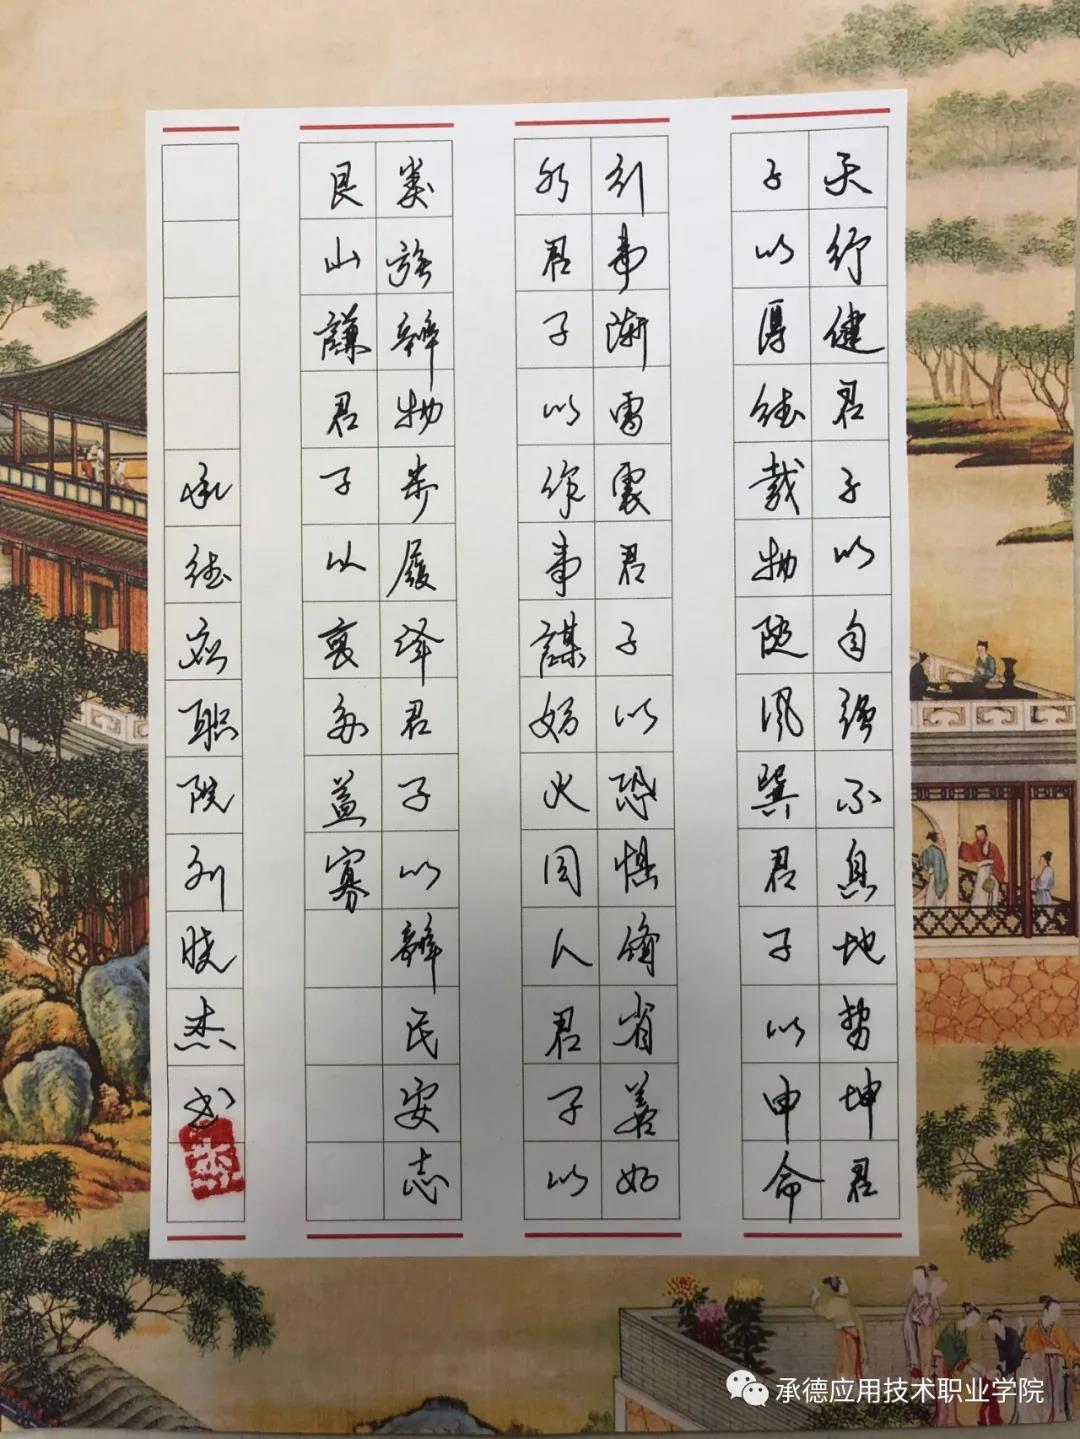 天行健君子以自强不息地势坤君
子以厚德载物随风巽君子以申命
行事洊雷震君子以恐惧脩省善始
必君子以作事謀始火同人君子以
类族辨物步履泽君子以辨民安志
艮山謙君子以裒多益寡
承德应职院刘晓杰书
承德应用技术职业学院